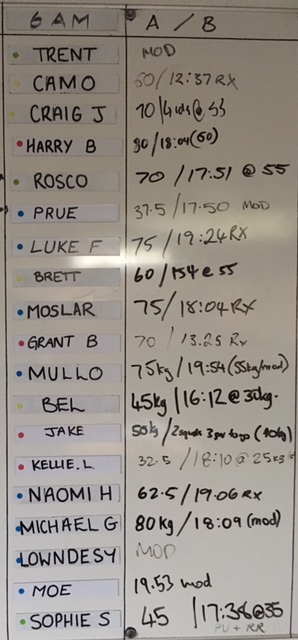 6 AM A / B
TRENT MOD
CAMO 60/12:37 RX
CRAIG J 70 @ 53
HARRY B 90/18:04(60)
ROSCO 70 /17:51 @ 55
PRUE 37.5/17:50 MOD
LUKE F 75/19:24 RX
BRETT 60/154 @ 55
MOSLAR 75/18:04 RX
GRANT B 70 / 13.25 Rx
MULLO 75kg/19:54 (55kg/mod)
BEL 45kg/16:12 @ 35kg.
JAKE 50kg/2 squats 3 pu to go (40kg)
KELLIE.L 32.5 /18:10 @ 25KG
NAOMI H 62.5/19.06 RX
MICHAEL G 80kg/18:09 (mod)
LOWNDESY MOD
MOE 19.53 mod
SOPHIE S 45 /17:38@35
PU + RR